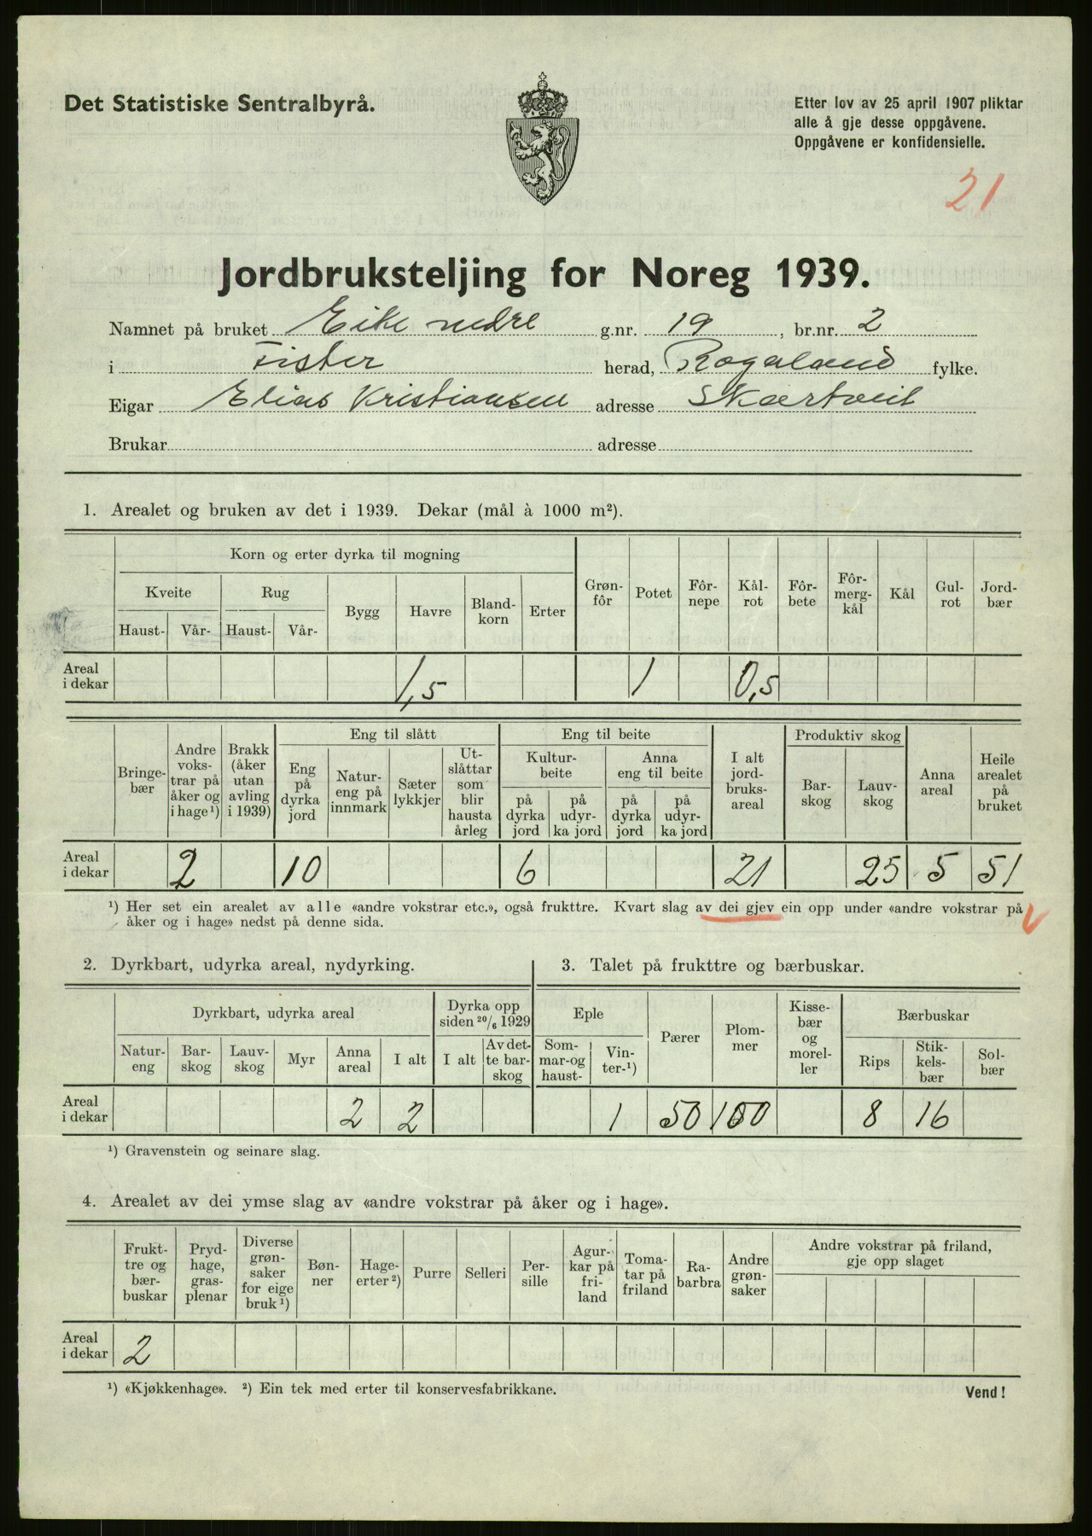 Det Statistiske Sentralbyrå.
Etter lov av 25 april 1907 pliktar
alle å gje desse oppgåvene.
Oppgåvene er konfidensielle.
21
Jordbruksteljing for Noreg 1939.
Namnet på bruket Eike nedre g.nr. 19, br.nr. 2
i Fister herad, Rogaland fylke.
Eigar Elias Kristiansen adresse Skartveit
Brukar adresse
1. Arealet og bruken av det i 1939. Dekar (mål à 1000 m²).
Korn og erter dyrka til mogning
Kveite
Haust-
Vår-
Rug
Haust-
Vår-
Bygg
Havre
Bland-
korn
Erter
Grøn-
fôr
Potet
Fôr-
nepe
Kål-
rot
Fôr-
bete
Fôr-
merg-
kål
Kål
Gul-
rot
Jord-
bær
Areal
i dekar
1,5
1
0,5
Bringe-
bær
Andre
voks-
trar på
åker og
i hage¹)
Brakk
(åker
utan
avling
i 1939)
Eng til slått
Eng
på
dyrka
jord
Natur-
eng på
innmark
Sæter
lykkjer
Ut-
slåttar
som
blir
hausta
årleg
Eng til beite
Kultur-
beite
på
dyrka
jord
på
udyr-
ka jord
Anna
eng til beite
på
dyrka
jord
på
udyr-
ka jord
I alt
jord-
bruks-
areal
Produktiv skog
Bar-
skog
Lauv-
skog
Anna
areal
Heile
arealet
på
bruket
Areal
i dekar
2
10
6
21
25
5
51
¹) Her set ein arealet av alle «andre vokstrar etc.», også frukttre. Kvart slag av dei gjev ein opp under «andre vokstrar på
åker og i hage» nedst på denne sida.
2. Dyrkbart, udyrka areal, nydyrking.
Dyrkbart, udyrka areal
Natur-
eng
Bar-
skog
Lauv-
skog
Myr
Anna
areal
I alt
Dyrka opp
siden 20/6 1929
I alt
Av det-
te bar-
skog
Areal
i dekar
2
2
¹) Gravenstein og seinare slag.
3. Talet på frukttre og bærbuskar.
Eple
Som-
mar-og
haust-
Vin-
ter-¹)
Pærer
Plom-
mer
Kisse-
bær
og
morel-
ler
Bærbuskar
Rips
Stik-
kels-
bær
Sol-
bær
1
50
100
8
16
4. Arealet av dei ymse slag av «andre vokstrar på åker og i hage».
Frukt-
tre og
bær-
buskar
Pryd-
hage,
gras-
plenar
Diverse
grøn-
saker
for eige
bruk¹)
Bøn-
ner
Hage-
erter²)
Purre
Selleri
Per-
sille
Agur-
kar på
fri-
land
Toma-
tar på
friland
Ra-
barbra
Andre
grøn-
saker
Andre vokstrar på friland,
gje opp slaget
Areal
i dekar
2
¹) «Kjøkkenhage». ²) Ein tek med erter til konservesfabrikkane.
Vend!